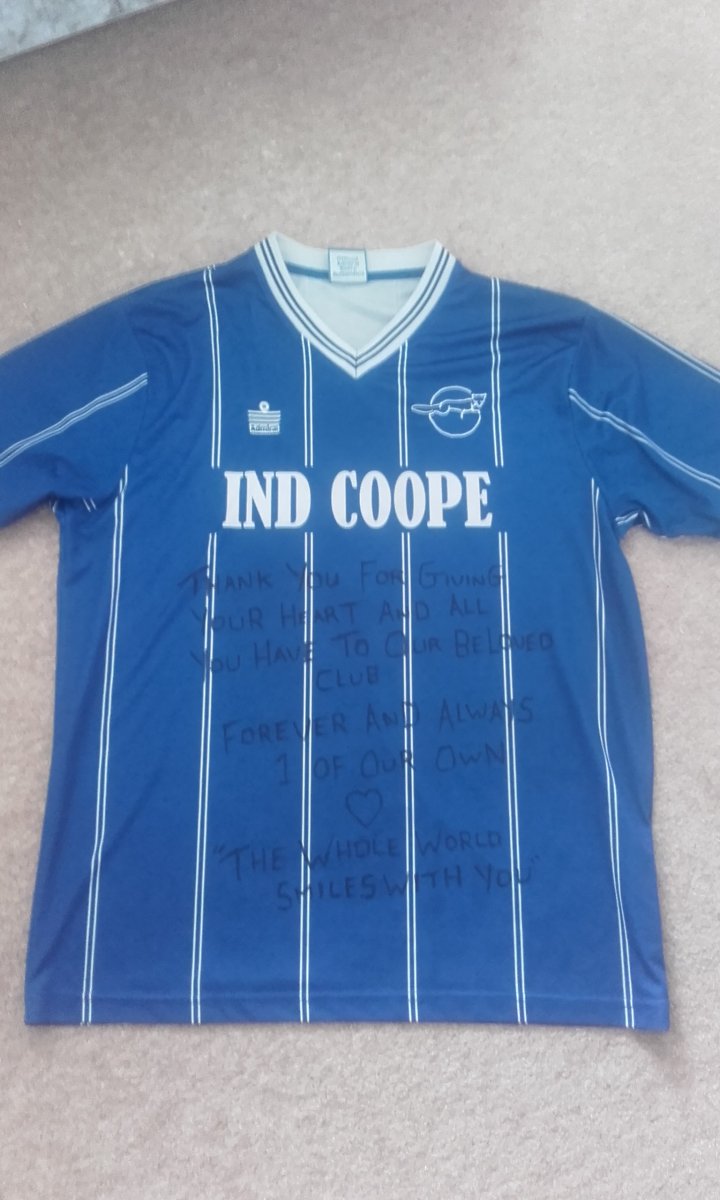 Admiral
IND COOPE
THANK YOU FOR GIVING
YOUR HEART AND ALL
YOU HAVE TO OUR BELOVED
CLUB
FOREVER AND ALWAYS
1 OF OUR OWN
"THE WHOLE WORLD
SMILES WITH YOU"